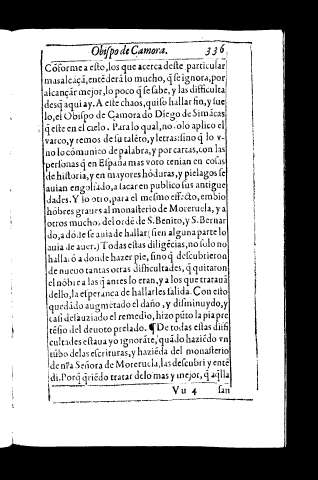 Obispo de Camora. 336
Cõforme a esto, los que acerca deste particular
mas alcãçã, entẽderã lo mucho, q̃ se ignora, por
alcançar mejor, lo poco q̃ se sabe, y las difficulta
desq̃ aqui ay. A este chaos, quiso hallar fin, y sue
lo, el Obispo de Çamora dõ Diego de Simãcas
q̃ este en el cielo. Para lo qual, no solo aplico el
varco, y remos de su talẽto, y letras: sino q̃ lo v-
no lo cõmunico de palabra, y por cartas, con las
personas q̃ en España mas voto tenian en cosas
de historia, y en mayores hõduras, y pielagos se
auian engolfado, a sacar en publico sus antigue
dades. Y lo otro, para el mesmo effecto, embio
hõbres graues al monasterio de Moreruela, y a
otros mucho, del ordẽ de S. Benito, y S. Bernar
do, a dõde se auia de hallar (si en alguna parte lo
auia de auer.) Todas estas diligẽcias, no solo no
hallarõ a donde hazer pie, sino q̃ descubrieron
de nueuo tantas otras difficultades, q̃ quitaron
el nõbre a las q̃ antes lo eran, y a los que trataua
dello, la esperança de hallarles salida. Con esto
quedãdo augmẽtado el daño, y disminuydo, y
casi desauziado el remedio, hizo pũto la pia pre
tẽsio del deuoto prelado. ¶ De todas estas diffi
cultades estaua yo ignorãte, quãdo haziẽdo vn
tũbo de las escrituras, y haziẽda del monasterio
de nr̃a Señora de Moreruela, las descubri y entẽ
di. Porq̃ q̃riẽdo tratar de lo mas y mejor, q̃ aq̃lla
Vu 4 san